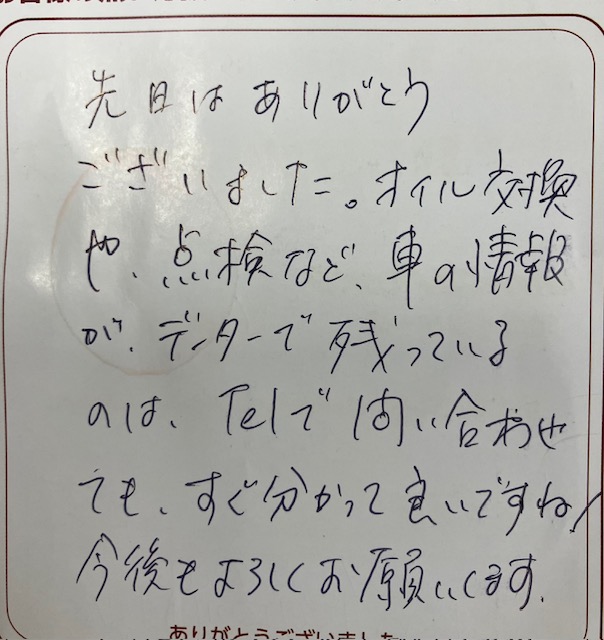 先日はありがとう
ございました。オイル交換
や、点検など、車の情報
が、データーで残っている
のは、Telで問い合わせ
ても、すぐ分かって良いですね！
今後もよろしくお願いします。
ありがとうございました